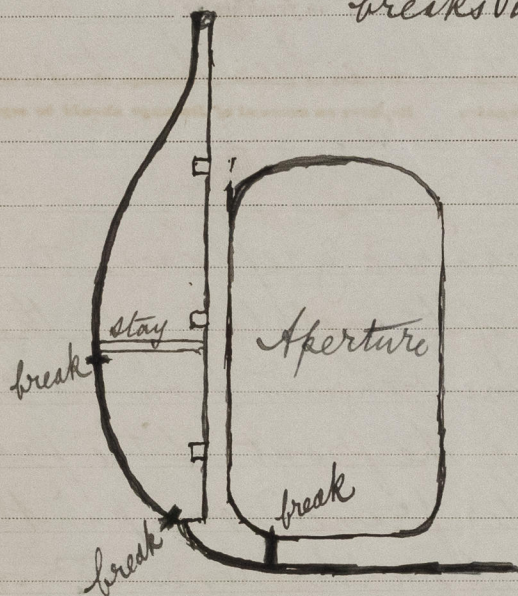 breaks
stay
Aperture
break
break
break